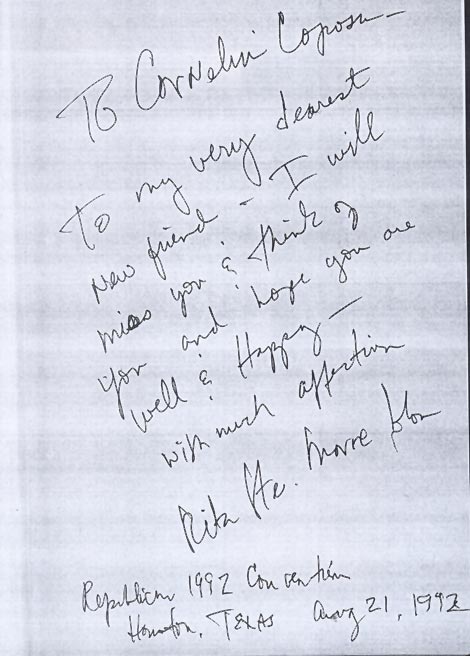 To Corneliu Coposu –
To my very dearest
New friend – I will
miss you & think of
you and hope you are
well & Happy —
with much affection
Rita
Republican 1992 Convention
Houston, TEXAS Aug 21, 1992